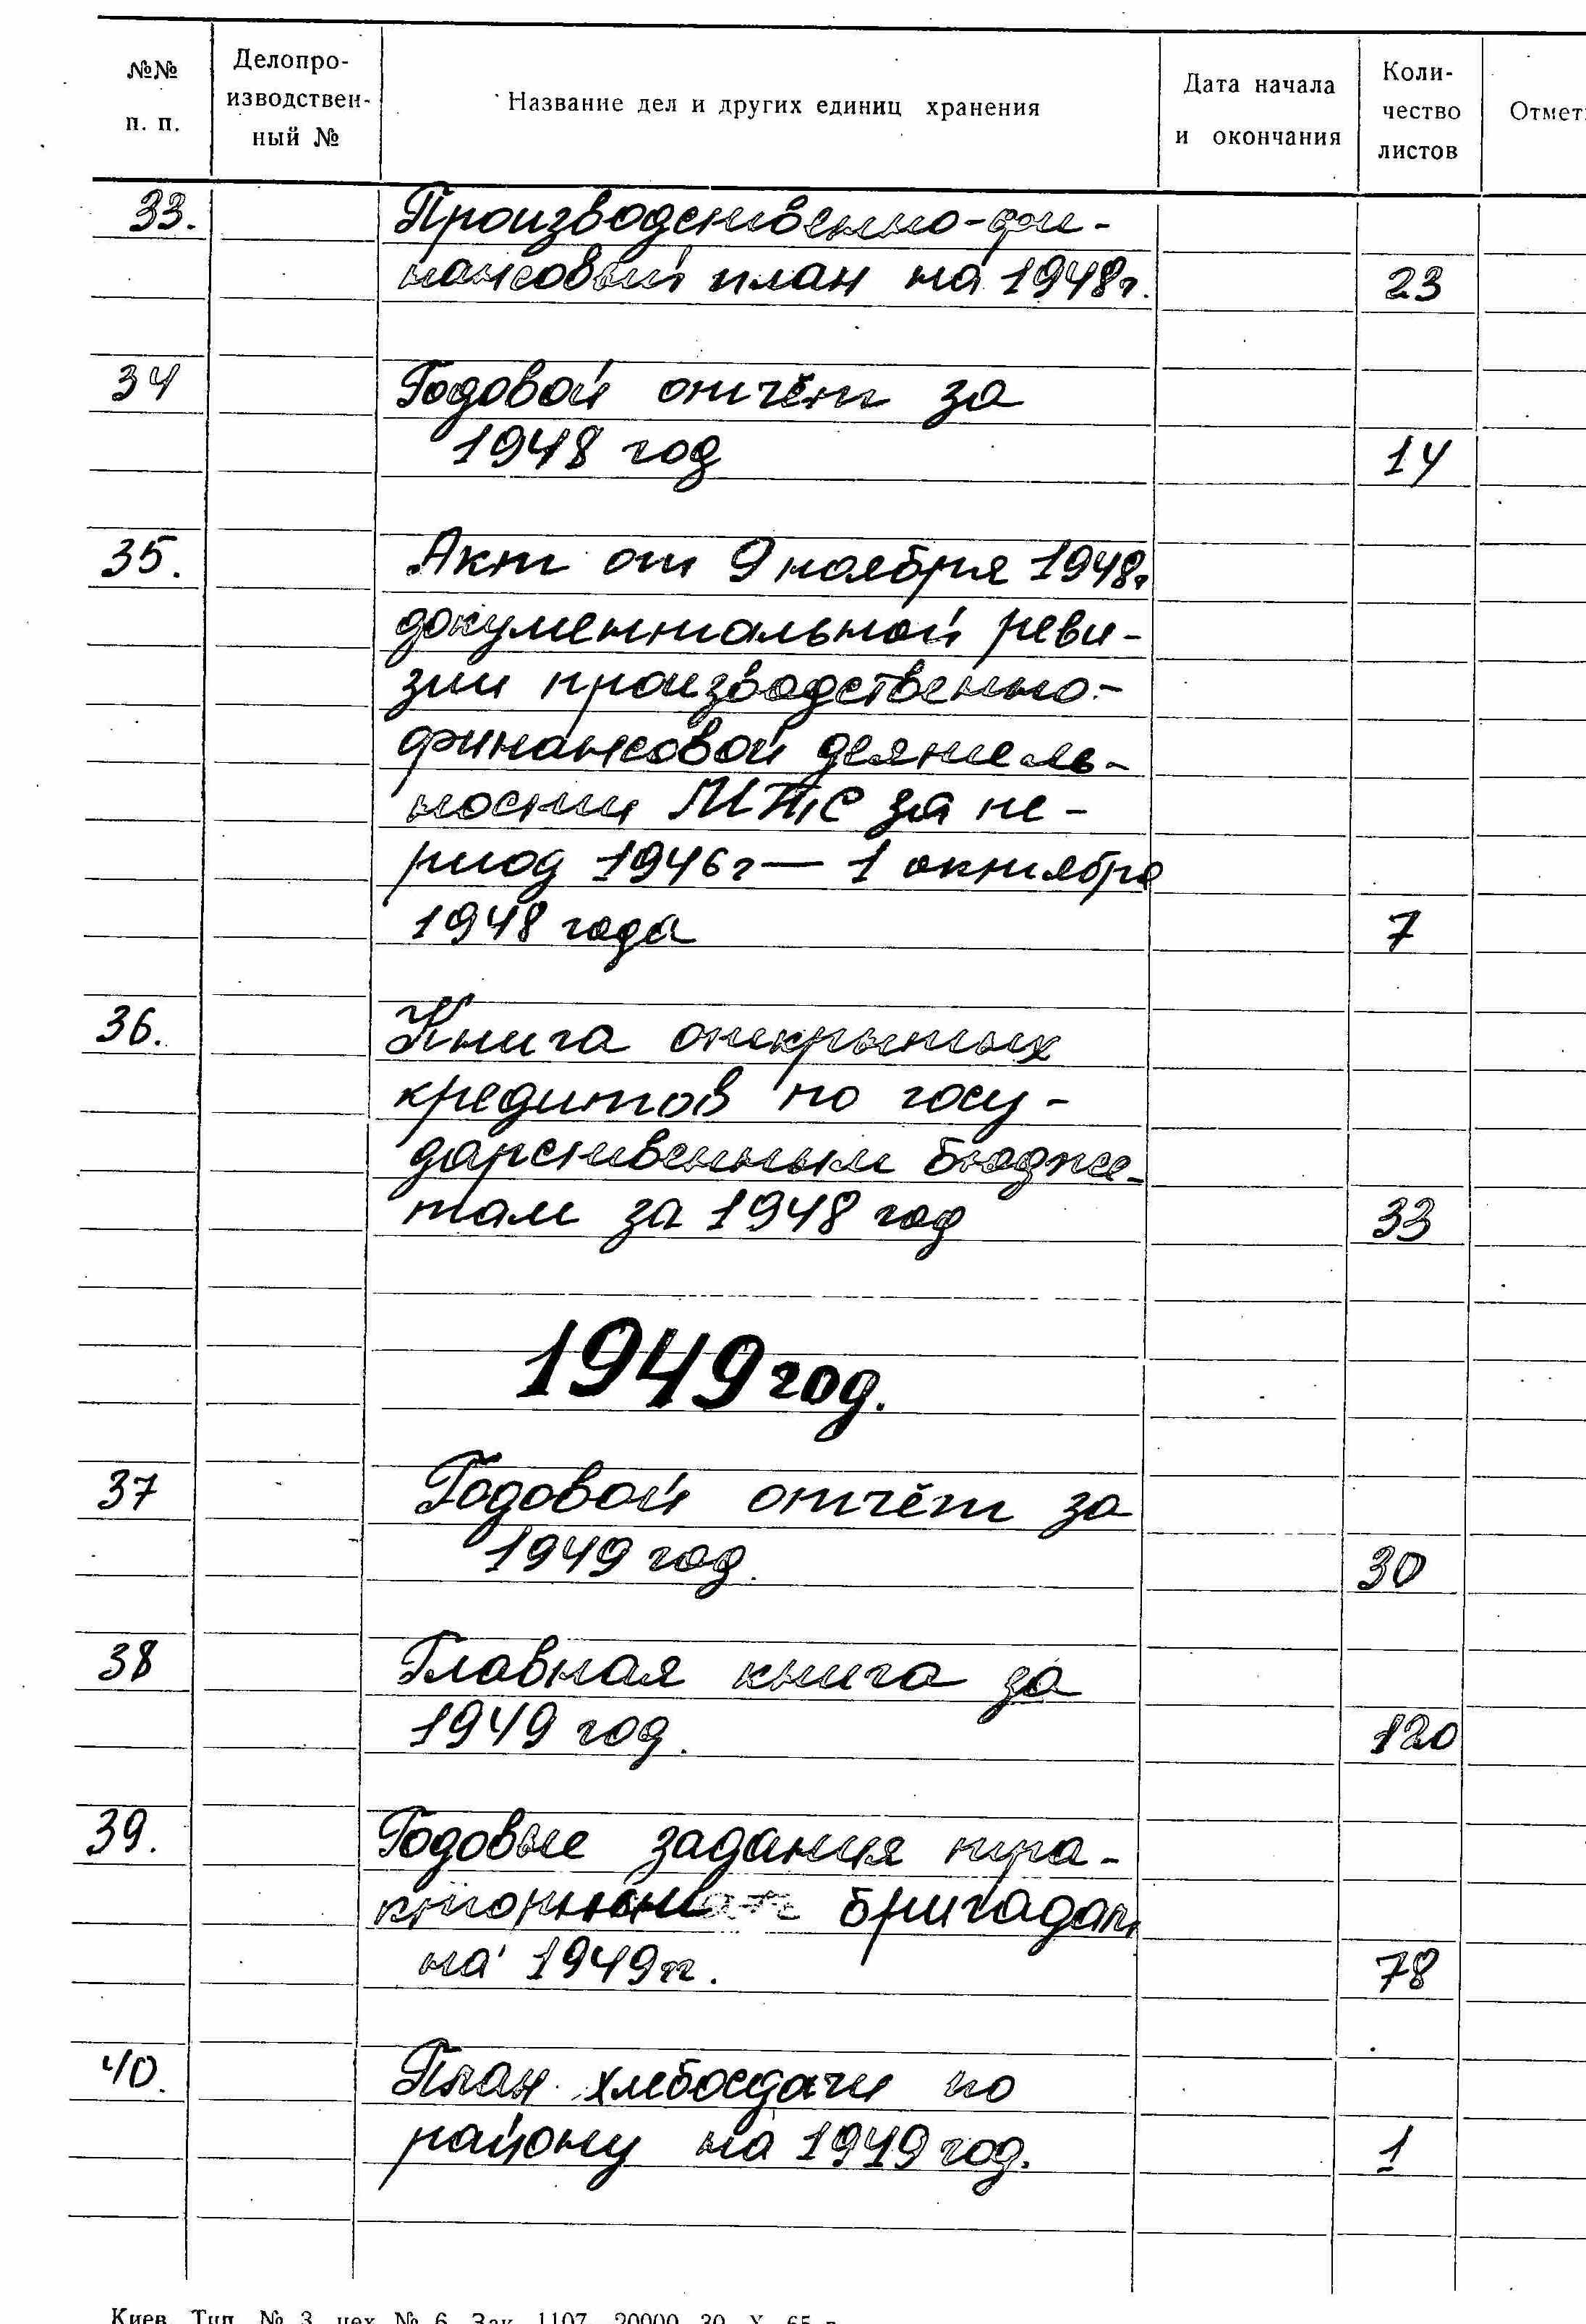 №№ п. п.
Делопро-
изводствен-
ный №
Название дел и других единиц хранения
Дата начала
и окончания
Коли-
чество
листов
Отмет
33. Производственно-фи-
нансовый план на 1948г. 23
34 Годовой отчёт за
1948 год 14
35. Акт от 9 ноября 1948г
документальной реви-
зии производственно-
финансовой деятель-
ности МТС за пе-
риод 1946г — 1 октября
1948 года 7
36. Книга открытых
кредитов по госу-
дарственным бюдже-
там за 1948 год 33
1949 год.
37 Годовой отчёт за
1949 год. 30
38 Главная книга за
1949 год. 120
39. Годовые задания тра-
бригадам
на 1949 г. 78
40. План хлебосдачи по
району на 1949 год. 1
Киев. Тип. № 3, цех № 6. Зак. 1107—20000. 30. X. 65 г.